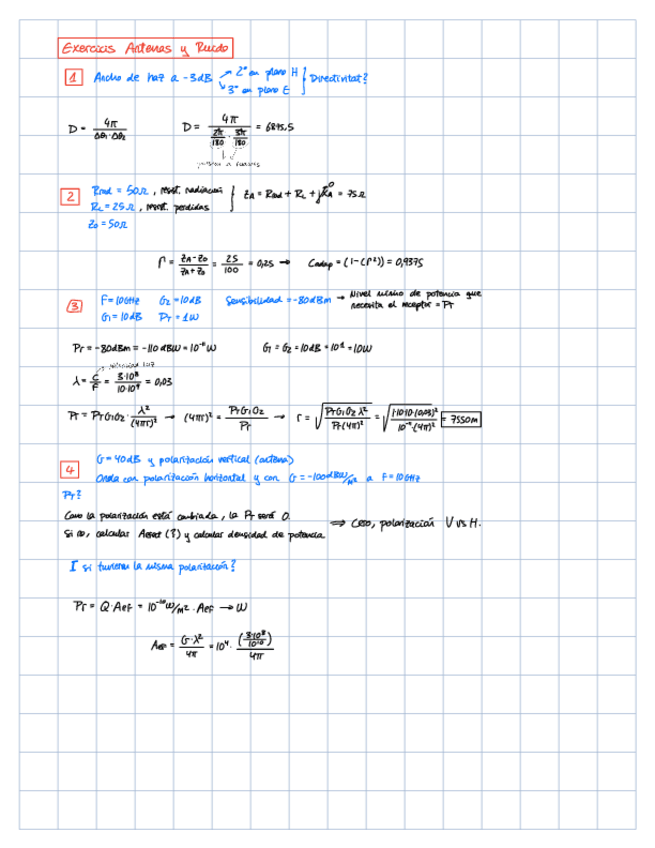 Exercicis Antenas y Ruido
1 Ancho de haz a -3dB → 2° en plano H
↳ 3° en plano E } Directivitat?
D = 4π / Δθ1·Δθ2 D = 4π / (2π/180 · 3π/180) = 6875,5
2 Rrad = 50Ω, resist. radiación
RL = 25Ω, resist. perdidas } ZA = Rrad + RL + jXA⁰ = 75Ω
Z0 = 50Ω
Γ = ZA-Z0 / ZA+Z0 = 25/100 = 0,25 → Cadap = (1-(Γ²)) = 0,9375
3 F=10GHz G2=10dB Sensibilidad = -80dBm → Nivel mínimo de potencia que
G1=10dB PT=1W necesita el receptor = Pr
Pr = -80dBm = -110dBW = 10⁻¹¹W G1 = G2 = 10dB = 10¹ = 10W
velocidad luz
λ = C/F = 3·10⁸ / 10·10⁹ = 0,03
Pr = PTG1G2 · λ²/(4πr)² → (4πr)² = PTG1G2/Pr → r = √(PTG1G2λ² / Pr(4π)²) = √(1·10·10·(0,03)² / 10⁻¹¹·(4π)²) = 7550m
4 G=40dB y polarización vertical (antena)
Onda con polarización horizontal y con G = -100dBW/m² a F=10GHz
Pr?
Como la polarización está cambiada, la Pr será 0.
Si no, calculas Aeset (?) y calculas densidad de potencia ⇒ Cero, polarización V vs H.
I si tuvieran la misma polarización?
Pr = Q·Aef = 10⁻¹⁰W/m²·Aef → W
Aef = G·λ²/4π = 10⁴ · (3·10⁸/10¹⁰)/4π